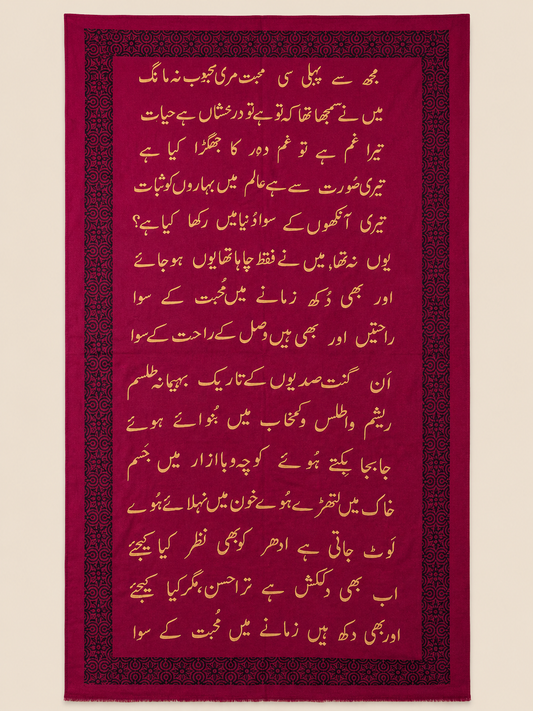 مجھ سے پہلی سی محبت مری محبوب نہ مانگ
میں نے سمجھا تھا کہ تو ہے تو درخشاں ہے حیات
تیرا غم ہے تو غم دہر کا جھگڑا کیا ہے
تیری صُورت سے ہے عالم میں بہاروں کو ثبات
تیری آنکھوں کے سوا دُنیا میں رکھا کیا ہے؟
یوں نہ تھا، میں نے فقط چاہا تھا یوں ہو جائے
اور بھی دُکھ زمانے میں مُحبت کے سوا
راحتیں اور بھی ہیں وصل کے راحت کے سوا
اَن گنت صدیوں کے تاریک بہیمانہ طلسم
ریشم و اطلس و کمخاب میں بُنوائے ہوئے
جابجا بِکتے ہُوئے کوچہ و باازار میں جَسم
خاک میں لتھڑے ہُوے خون میں نہلائے ہُوے
لَوٹ جاتی ہے ادھر کو بھی نظر کیا کیجئے
اب بھی دلکش ہے ترا حسن، مگر کیا کیجئے
اور بھی دکھ ہیں زمانے میں مُحبت کے سوا